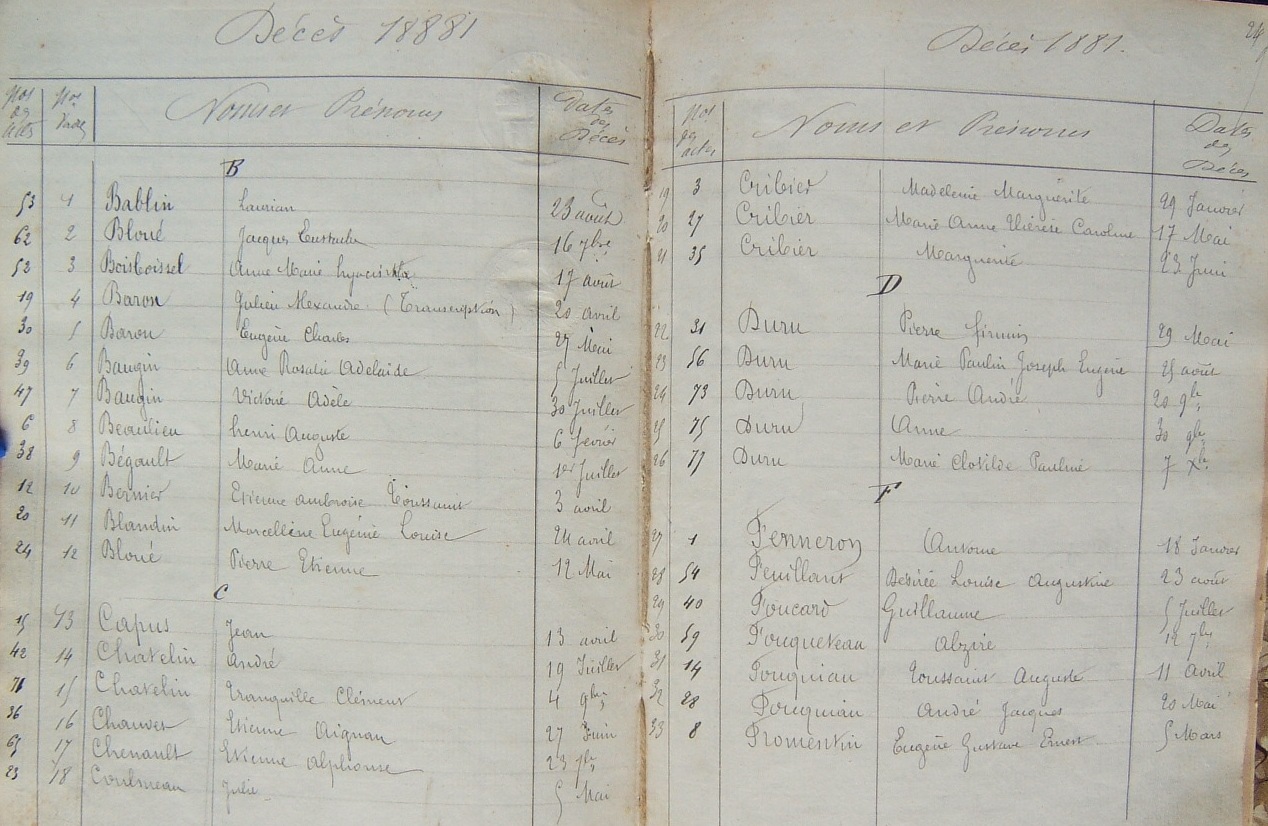 Décès 18881
Nos des actes Nos d'ordre Noms et Prénoms Dates des Décès
B
53 1 Bablin Laurian 23 août
62 2 Bloué Jacques Eustache 16 7bre
52 3 Boisboissel Anne Marie hyacinthe 17 août
19 4 Baron Julien Alexandre (Transcription) 20 avril
30 5 Baron Eugène Charles 27 Mai
39 6 Baugin Anne Rosalie Adelaide 5 Juillet
47 7 Baugin Victoire Adèle 30 Juillet
6 8 Beaulieu henri Auguste 6 fevrier
38 9 Bégault Marie Anne 1er Juillet
12 10 Bernier Etienne ambroise Toussaint 3 avril
20 11 Blandin Marcelline Eugénie Louise 24 avril
24 12 Bloué Pierre Etienne 12 Mai
C
15 13 Capus Jean 13 avril
42 14 Chatelin André 19 Juillet
71 15 Chatelin Tranquille Clément 4 9bre
36 16 Chauvet Etienne Aignan 27 Juin
65 17 Chenault Etienne alphonse 23 7bre
23 18 Coulmeau Julie 5 Mai
24
Décès 1881.
Nos des actes Noms et Prénoms Dates des Décès
19 3 Cribier Madeleine Marguerite 29 Janvier
20 27 Cribier Marie Anne Thérèse Caroline 17 Mai
21 35 Cribier Marguerite 23 Juin
D
22 31 Duru Pierre firmin 29 Mai
23 56 Duru Marie Paulin Joseph Eugène 25 août
24 73 Duru Pierre André 20 9bre
25 75 Duru Anne 30 9bre
26 77 Duru Marie Clotilde Pauline 7 Xbre
F
27 1 Fenneron Antoine 18 Janvier
28 54 Feuillant Désirée Louise Augustine 23 août
29 40 Foucard Guillaume 5 Juillet
30 59 Fouqueteau Alzire 12 7bre
31 14 Fouquiau Toussaint Auguste 11 Avril
32 28 Fouquiau André Jacques 20 Mai
33 8 Fromentin Eugène Gustave Ernest 5 Mars